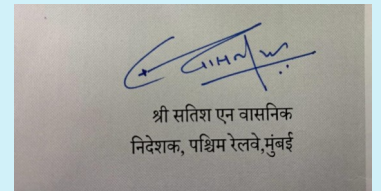 श्री सतिश एन वासनिक
निदेशक, पश्चिम रेलवे,मुंबई